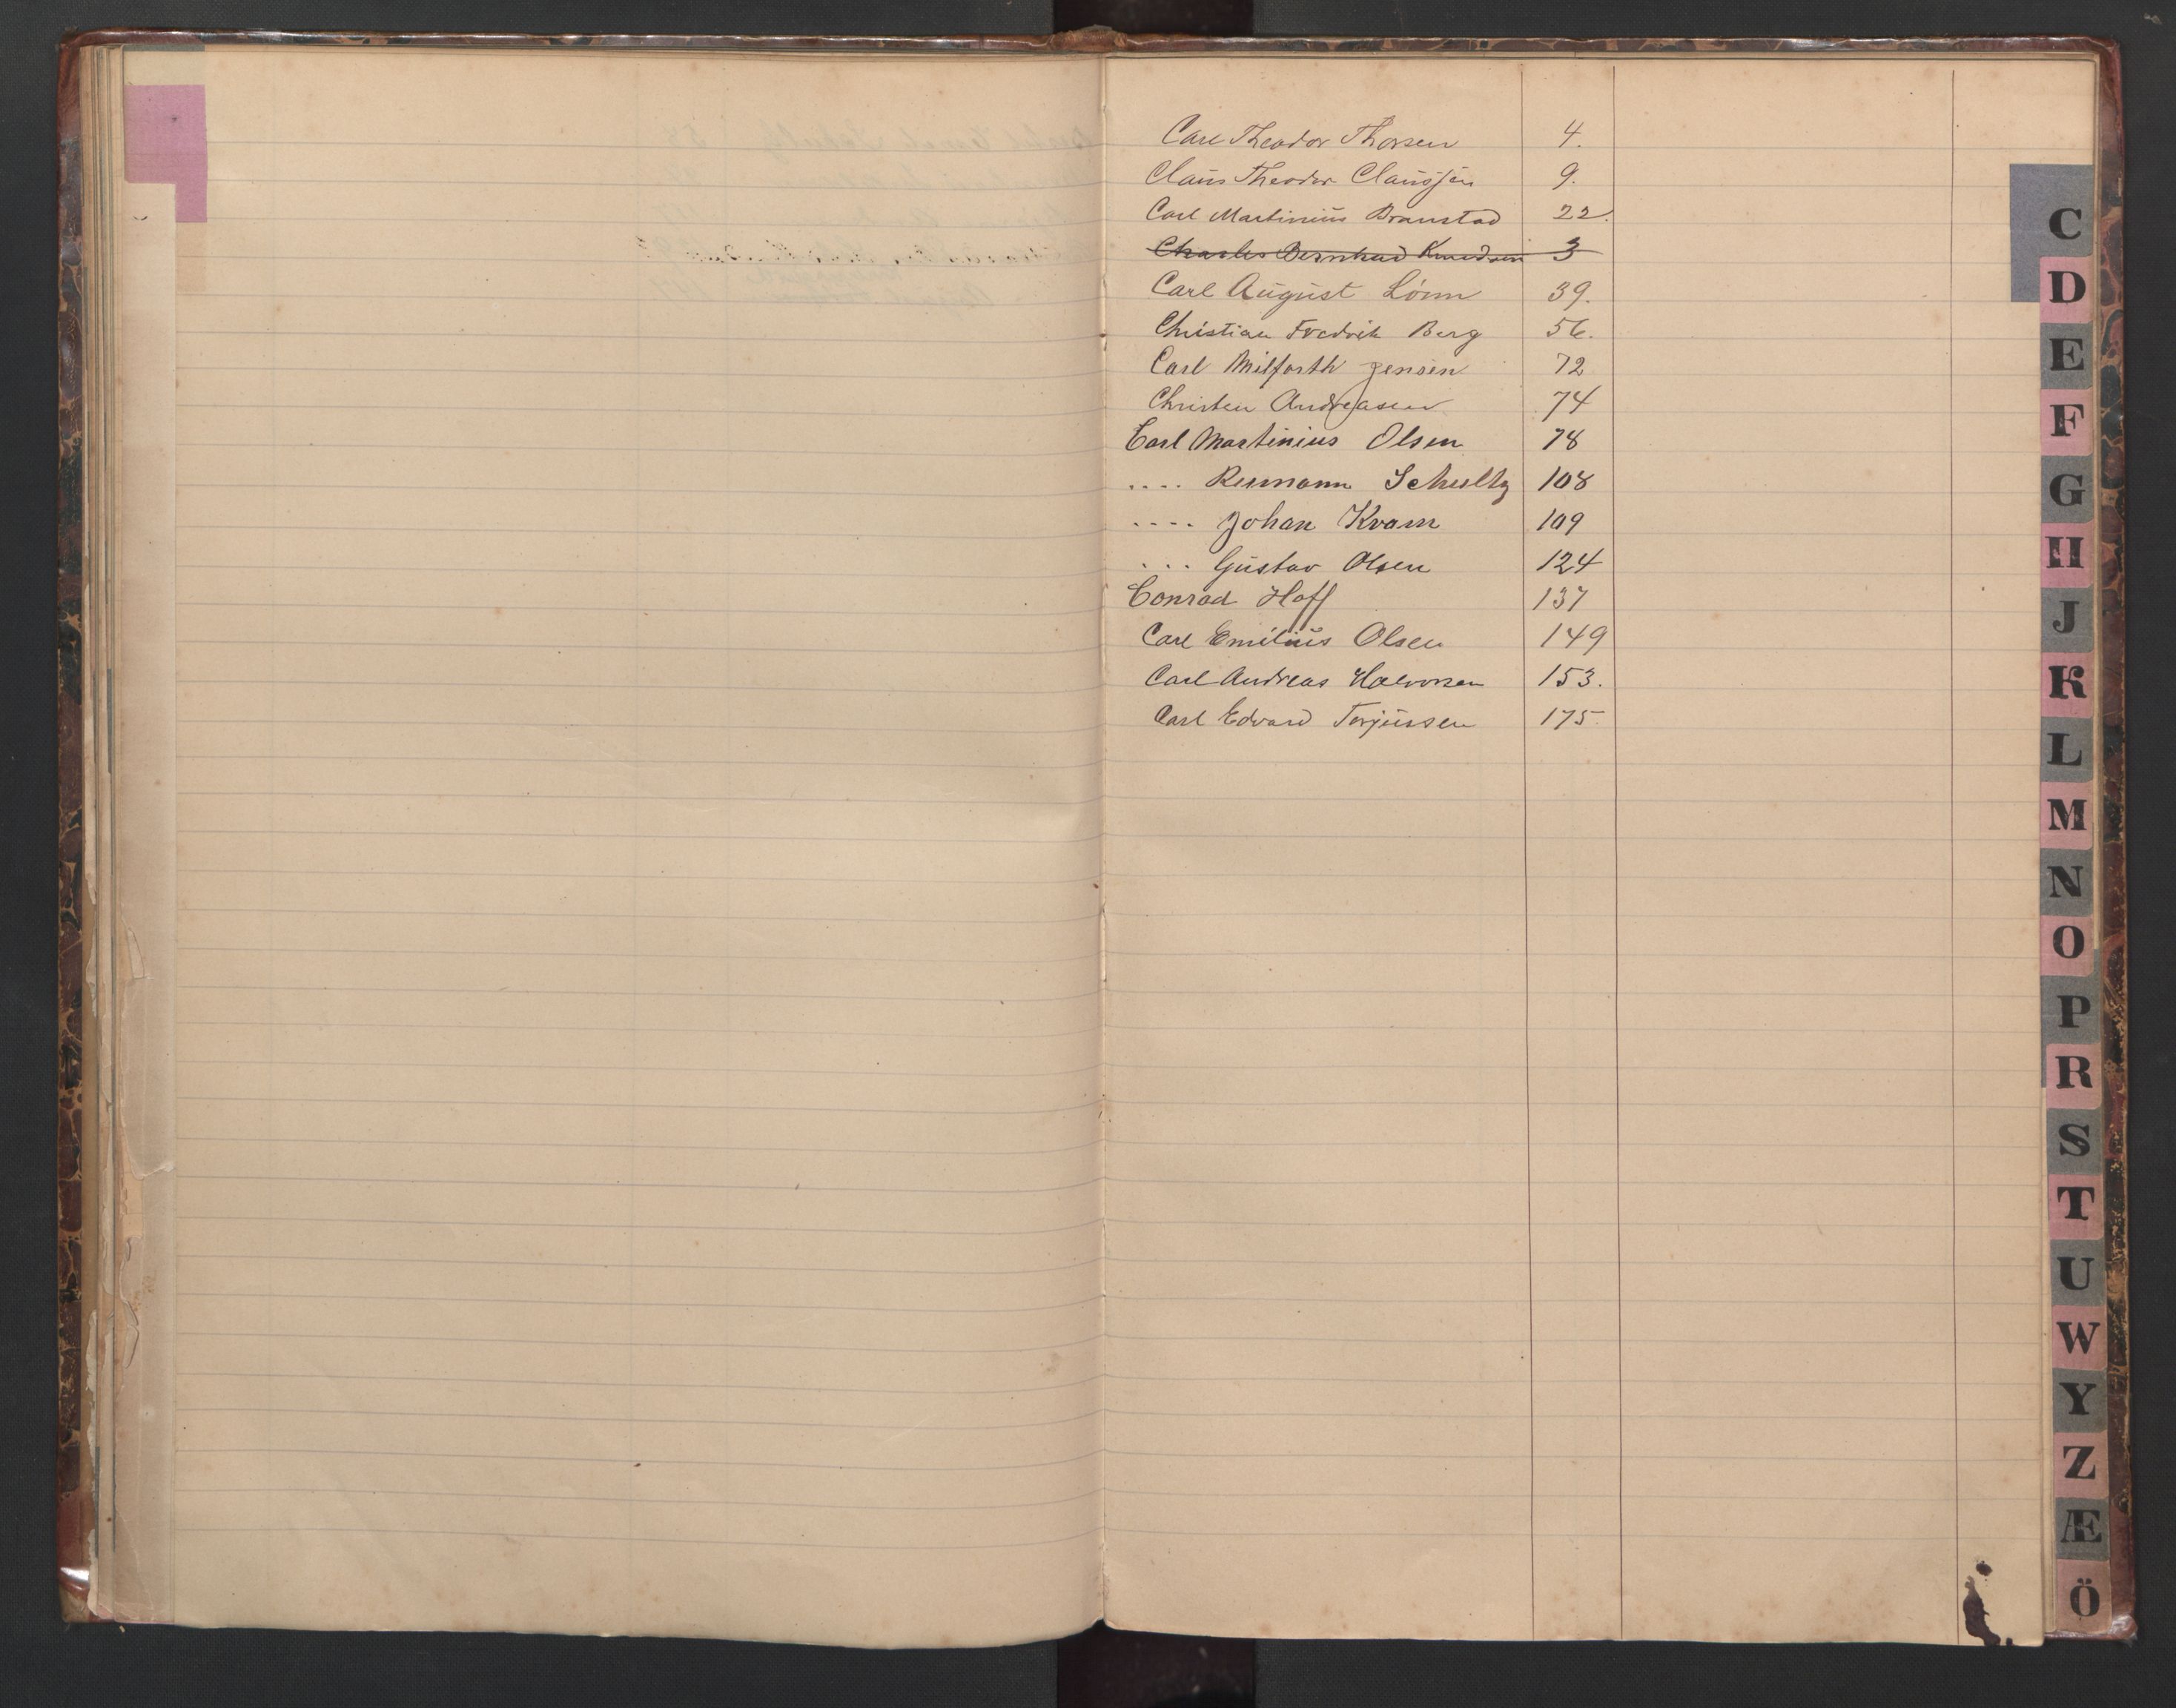 Carl Theodor Thorsen 4.
Claus Theodor Claussen 9.
Carl Martinius Branstad 22.
Charles Bernhard Knudsen 3
Carl August Lönn 39.
Christian Fredrik Berg 56.
Carl Milforth Jensen 72
Christen Andreasen 74
Carl Martinius Olsen 78
.... Rumann Schultz 108
.... Johan Kvam 109
... Gustav Olsen 124
Conrad Hoff 137
Carl Emilius Olsen 149
Carl Andreas Halvorsen 153.
Carl Edvard Torjussen 175.
C
D
E
F
G
H
J
K
L
M
N
O
P
R
S
T
U
W
Y
Z
Æ
Ö